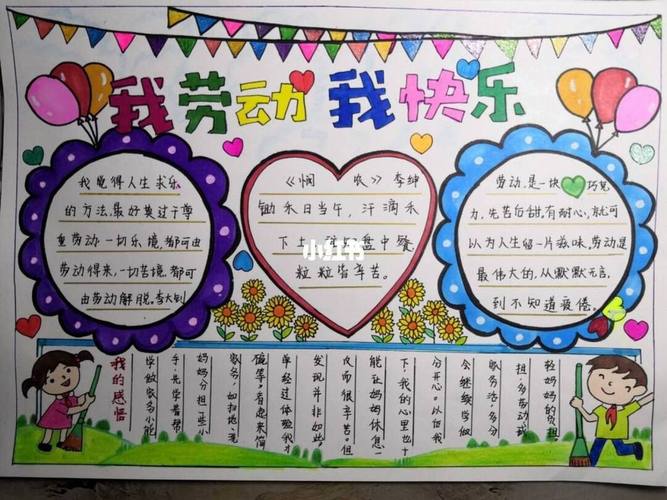 我劳动 我快乐
我觉得人生求乐
的方法,最好莫过于尊
重劳动一切乐境,都可由
劳动得来,一切苦境,都可
由劳动解脱。李大钊
《悯 农》李绅
锄禾日当午,汗滴禾
下土 盘中餐
粒粒皆辛苦。
小红书
劳动,是一块 巧克
力,先苦后甜,有耐心,就可
以为人生留一片滋味,劳动是
最伟大的,从默默无言,
到不知道疲倦。
我的感悟
学做家务小能
手,先学着帮
妈妈分担一些小
家务,如扫地、洗
碗等。看起来简
单经过体验我才
发现并非如此,
反而很辛苦。但
能让妈妈休息一
下,我的心里也十
分开心。以后我
会继续学做
家务活,多分
担,多劳动,减
轻妈妈的负担